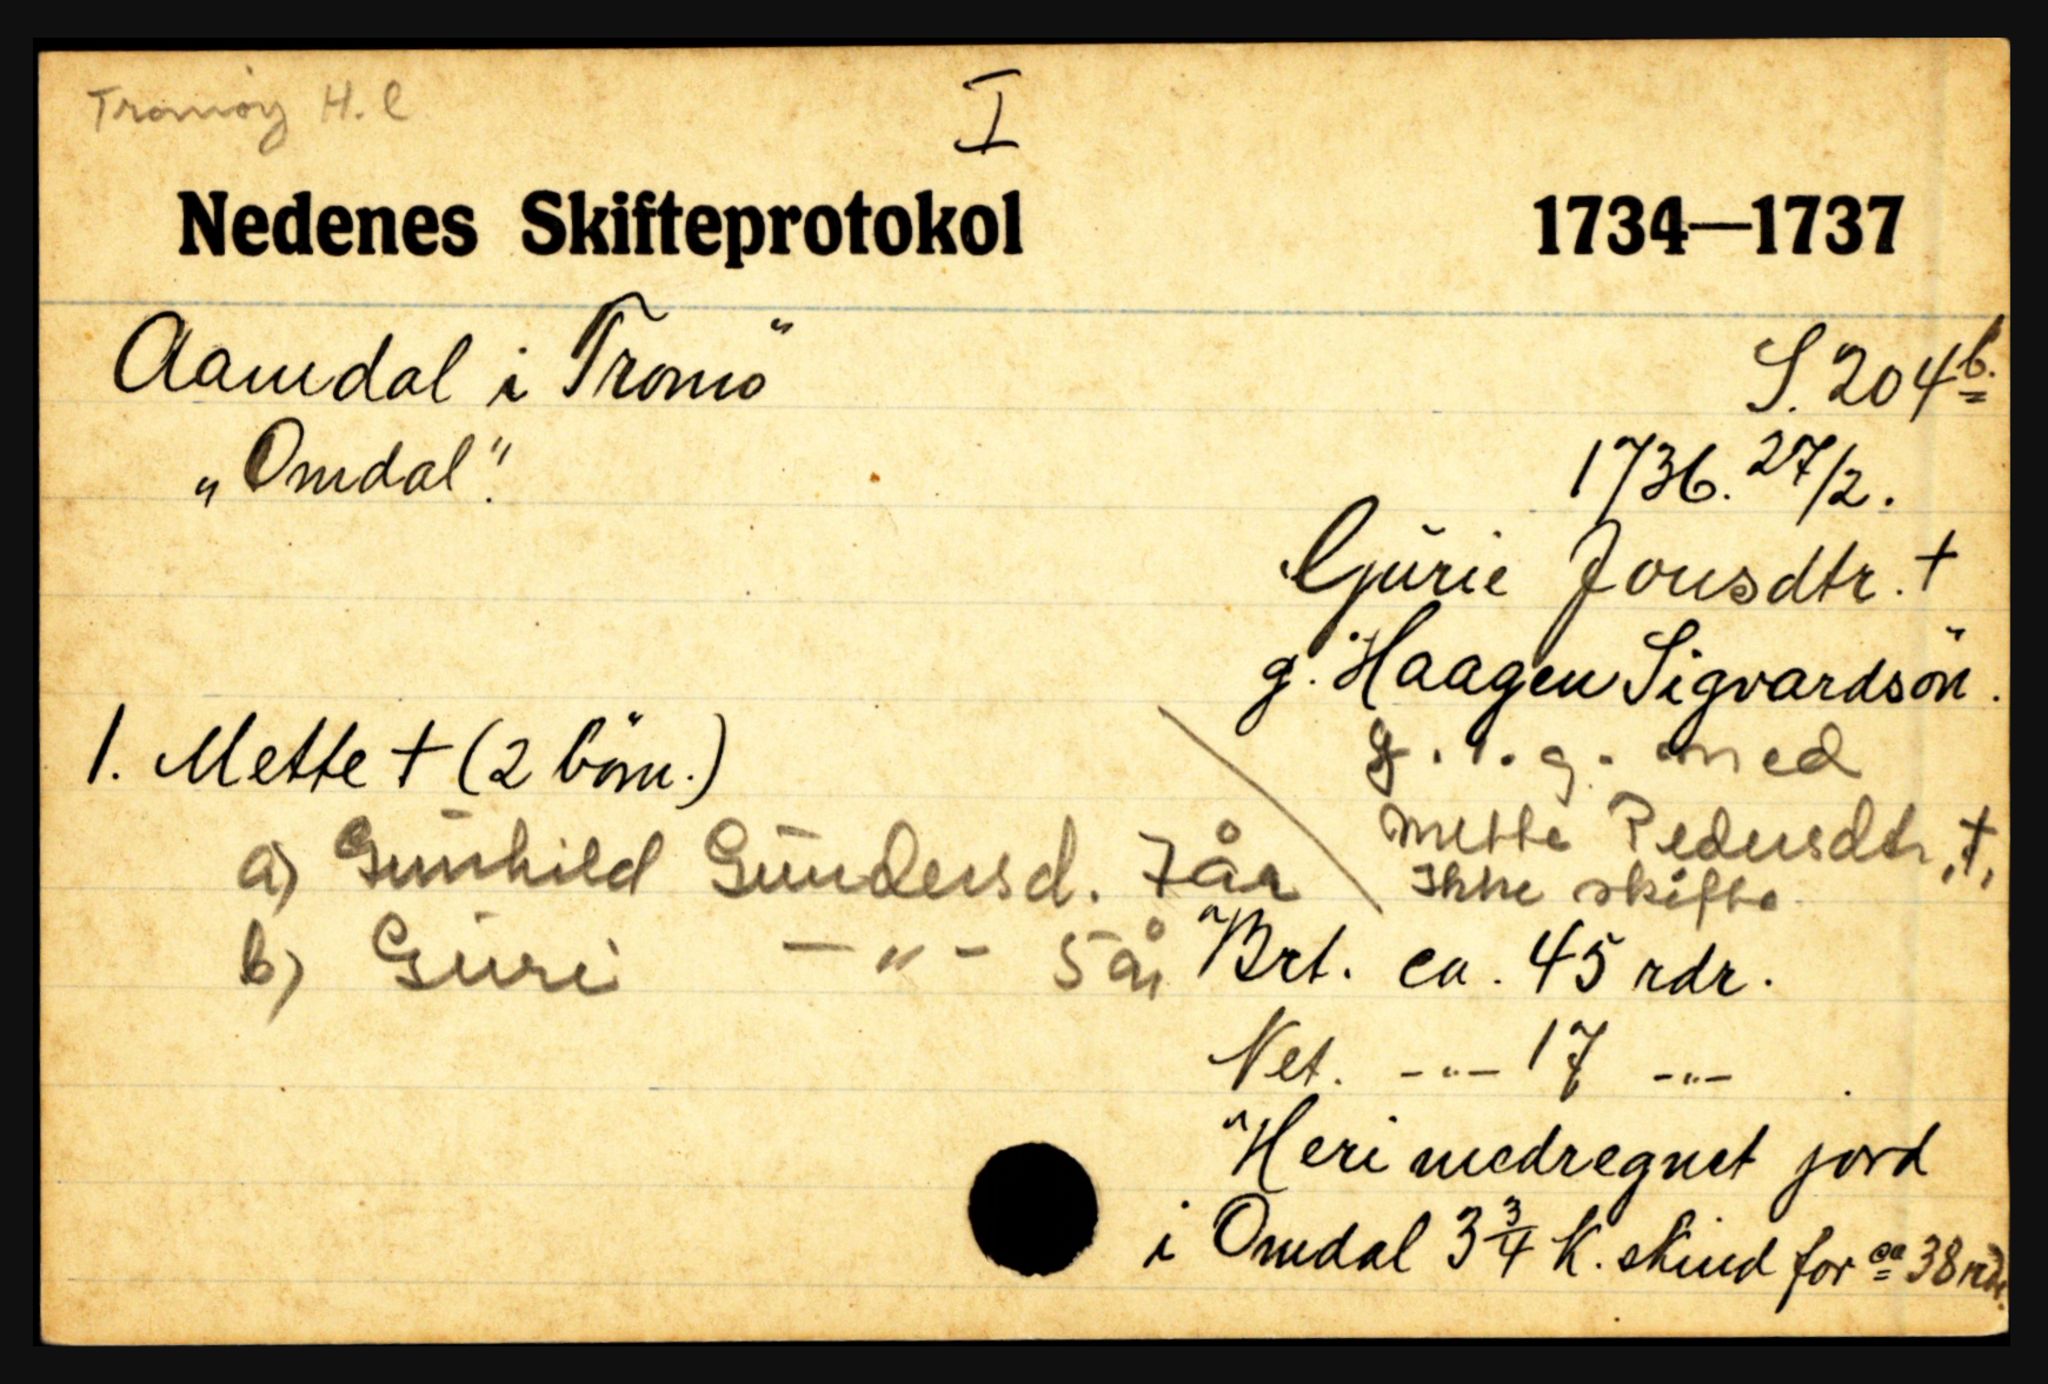 Tromøy H. C
I
Nedenes Skifteprotokol 1734—1737
Aamdal i Tromö
S. 204b.
„Omdal".
1736. 27/2.
Gjurie Jonsdtr. †
g. Haagen Sigvardsön.
1. Mette † (2 börn.)
g. 1. g. med
Mette Pedersdtr, †,
a) Gunhild Gundersd. 7 år
Ikke skifte
b) Guri —„— 5 år
Brt. ca. 45 rdr.
Net. —„— 17 —„—
Heri medregnet jord
i Omdal 3 3/4 K. skind for ca 38 rdr.